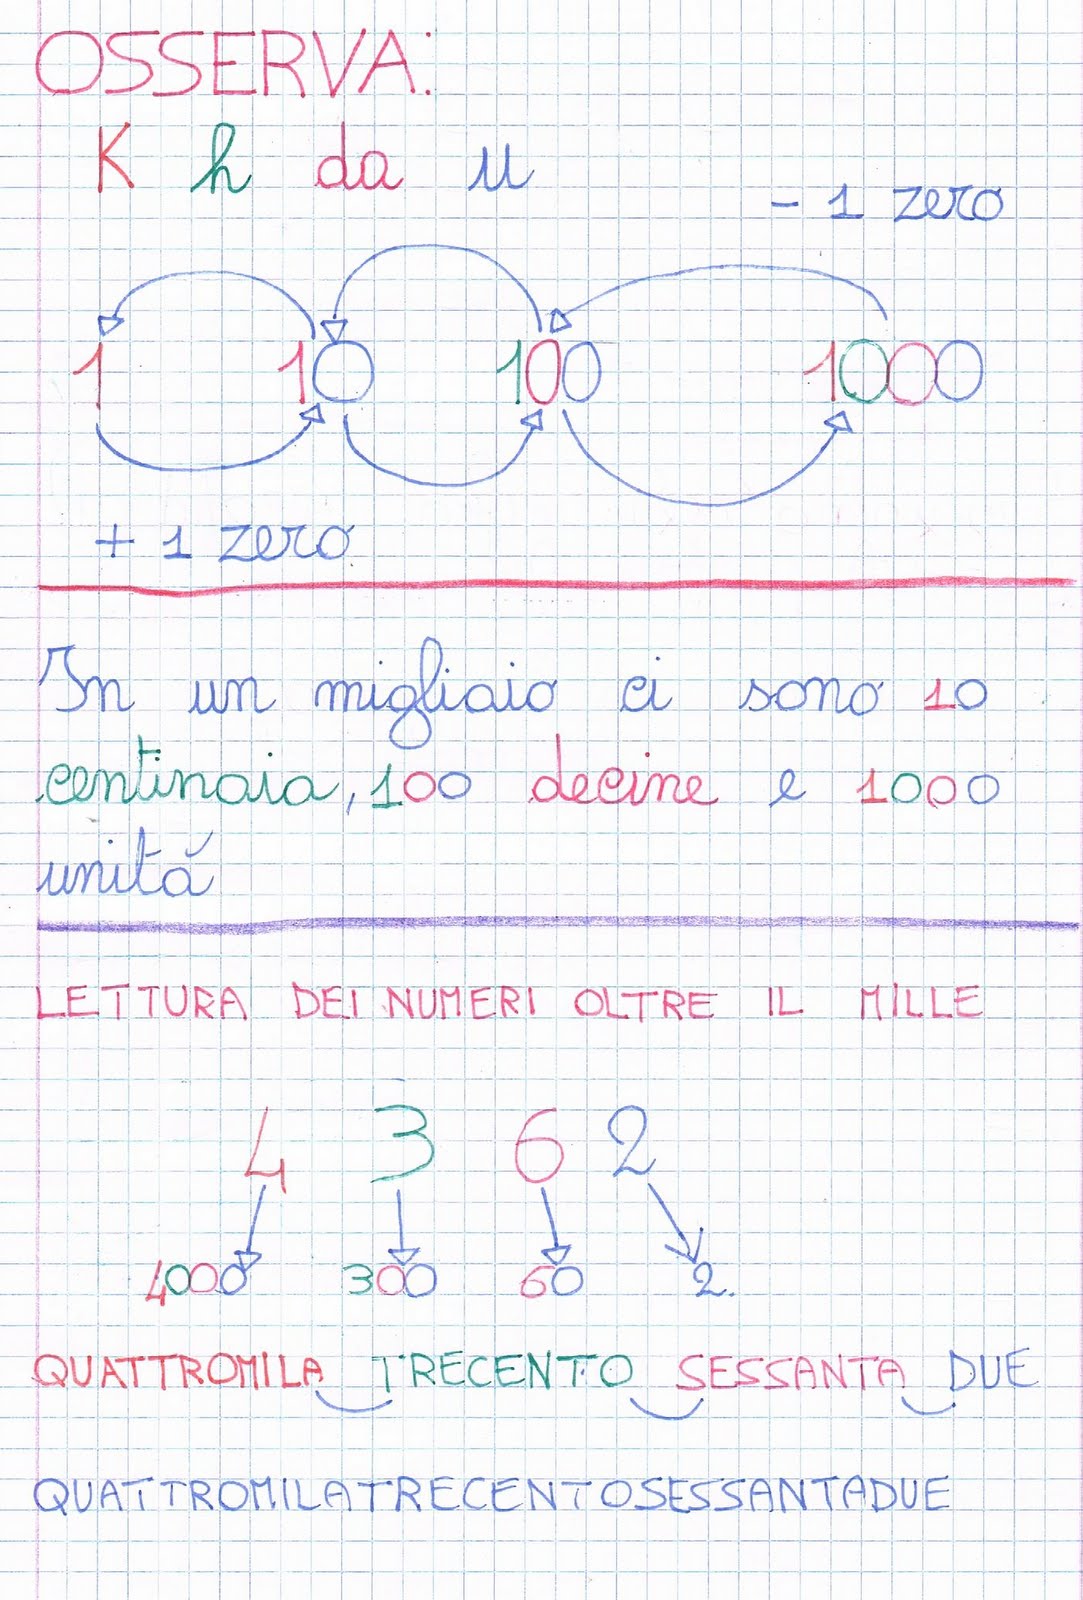 OSSERVA:
K h da u
- 1 zero
1 10 100 1000
+ 1 zero
In un migliaio ci sono 10
centinaia, 100 decine e 1000
unitá
LETTURA DEI NUMERI OLTRE IL MILLE
4 3 6 2
4000 300 60 2.
QUATTROMILA TRECENTO SESSANTA DUE
QUATTROMILATRECENTOSESSANTADUE